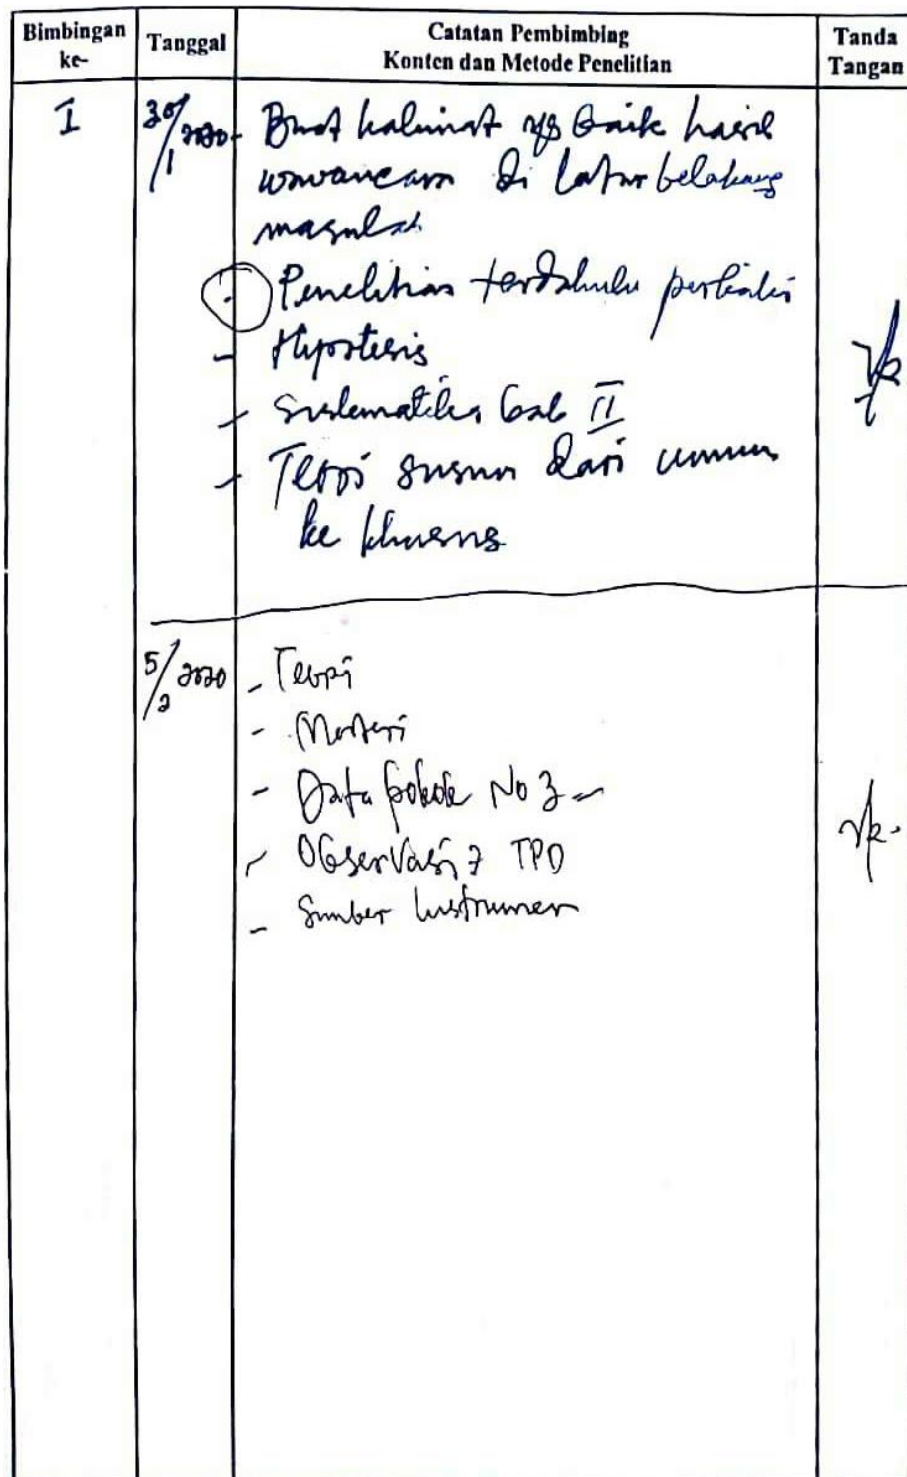 Bimbingan ke-
Tanggal
Catatan Pembimbing
Konten dan Metode Penelitian
Tanda Tangan
I
30/1 2020
- Buat kalimat yg baik hasil
wawancara di latar belakang
masalah
- Penelitian terdahulu perbaiki
- Hipotesis
- Sistematika bab II
- Teori susun dari umum
ke khusus
5/2 2020
- Teori
- Materi
- Data pokok No 3
- Observasi TPD
- Sumber Instrumen